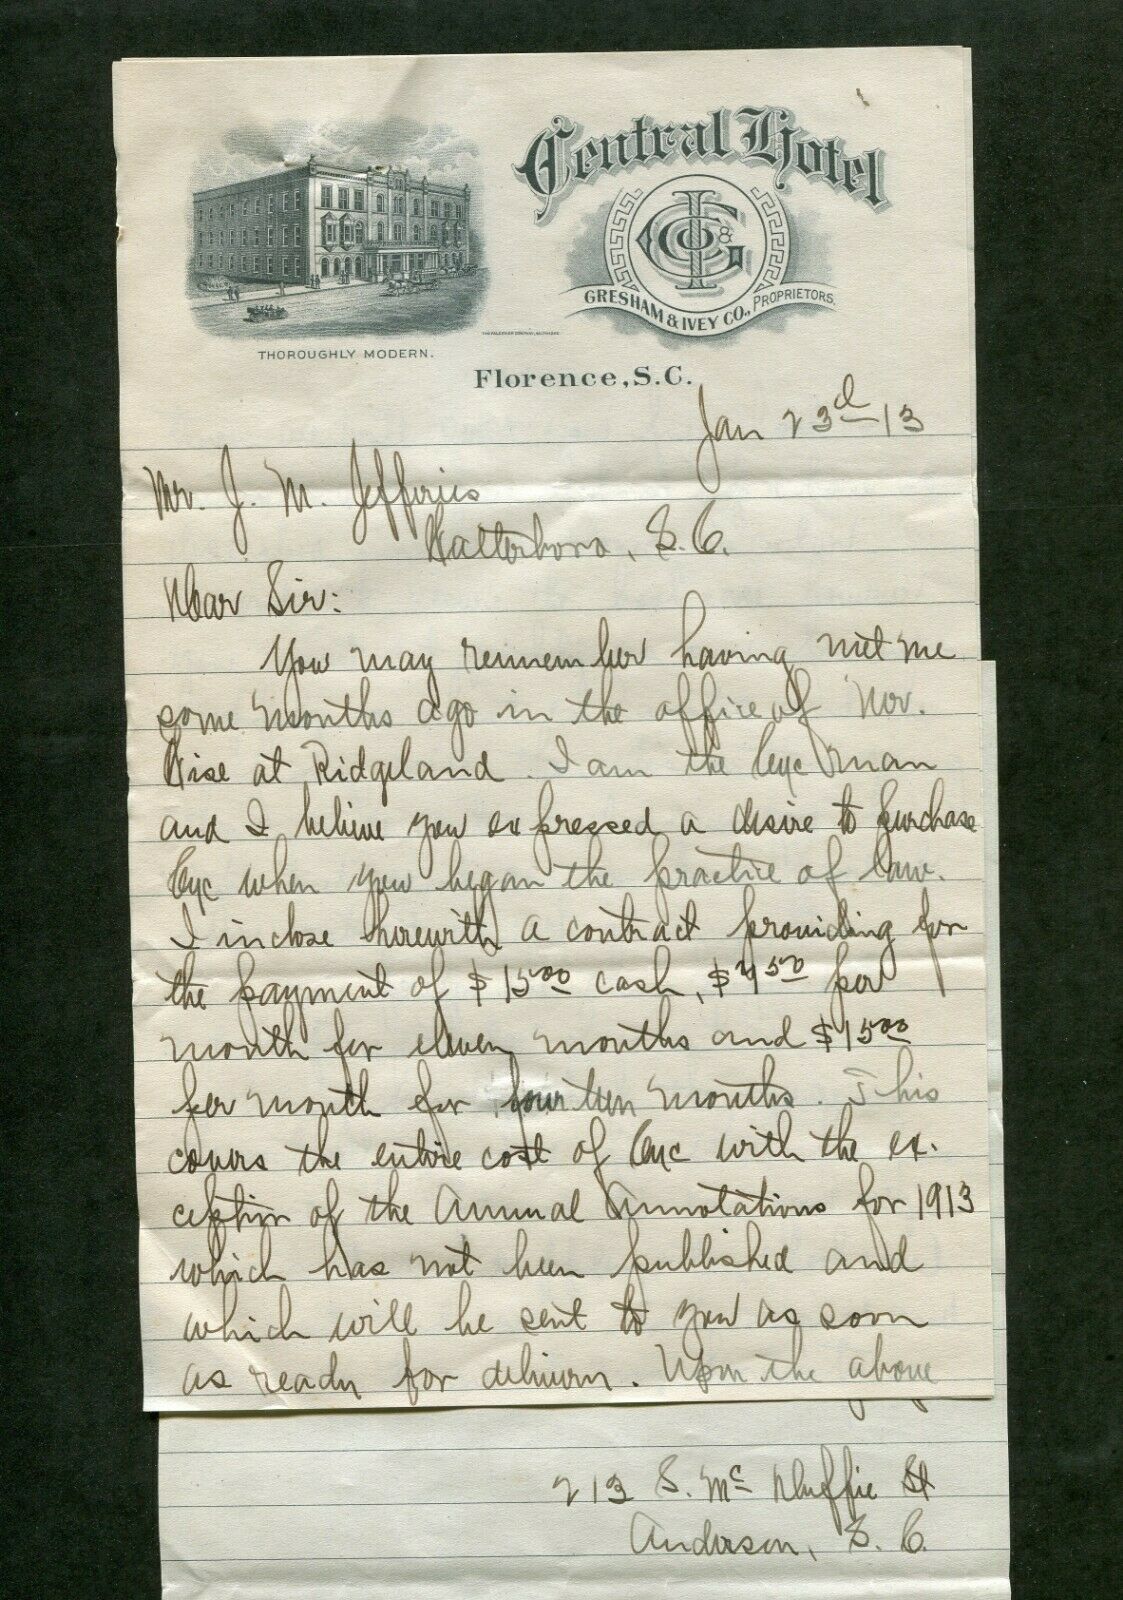 Central Hotel
G I Co &
GRESHAM & IVEY CO., PROPRIETORS.
THOROUGHLY MODERN.
Florence, S.C.
Jan 23rd 13
Mr. J. M. Jefferies
Walterboro, S. C.
Dear Sir:
You may remember having met me
some months ago in the office of Mr.
Wise at Ridgeland. I am the Cyc man
and I believe you expressed a desire to purchase
Cyc when you began the practice of law.
I inclose herewith a contract providing for
the payment of $15 00 cash, $7 50 per
month for eleven months and $15 00
per month for fourteen months. This
covers the entire cost of Cyc with the ex-
ception of the Annual Annotations for 1913
which has not been published and
which will be sent to you as soon
as ready for delivery. Upon the above
213 S. McDuffie St
Anderson, S. C.